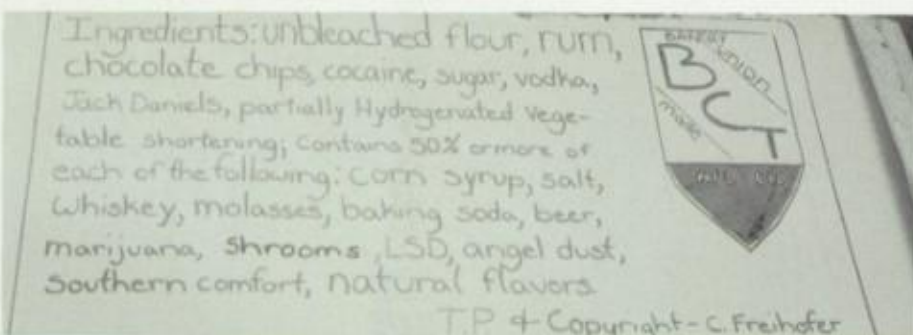 Ingredients: unbleached flour, rum,
chocolate chips, cocaine, sugar, vodka,
Jack Daniels, partially Hydrogenated Vege-
table shortening; contains 50% or more of
each of the following: corn syrup, salt,
Whiskey, molasses, baking soda, beer,
marijuana, Shrooms, LSD, angel dust,
Southern comfort, natural flavors
T.P & Copyright - C. Freihofer
BAKERY
UNION
BCT
made